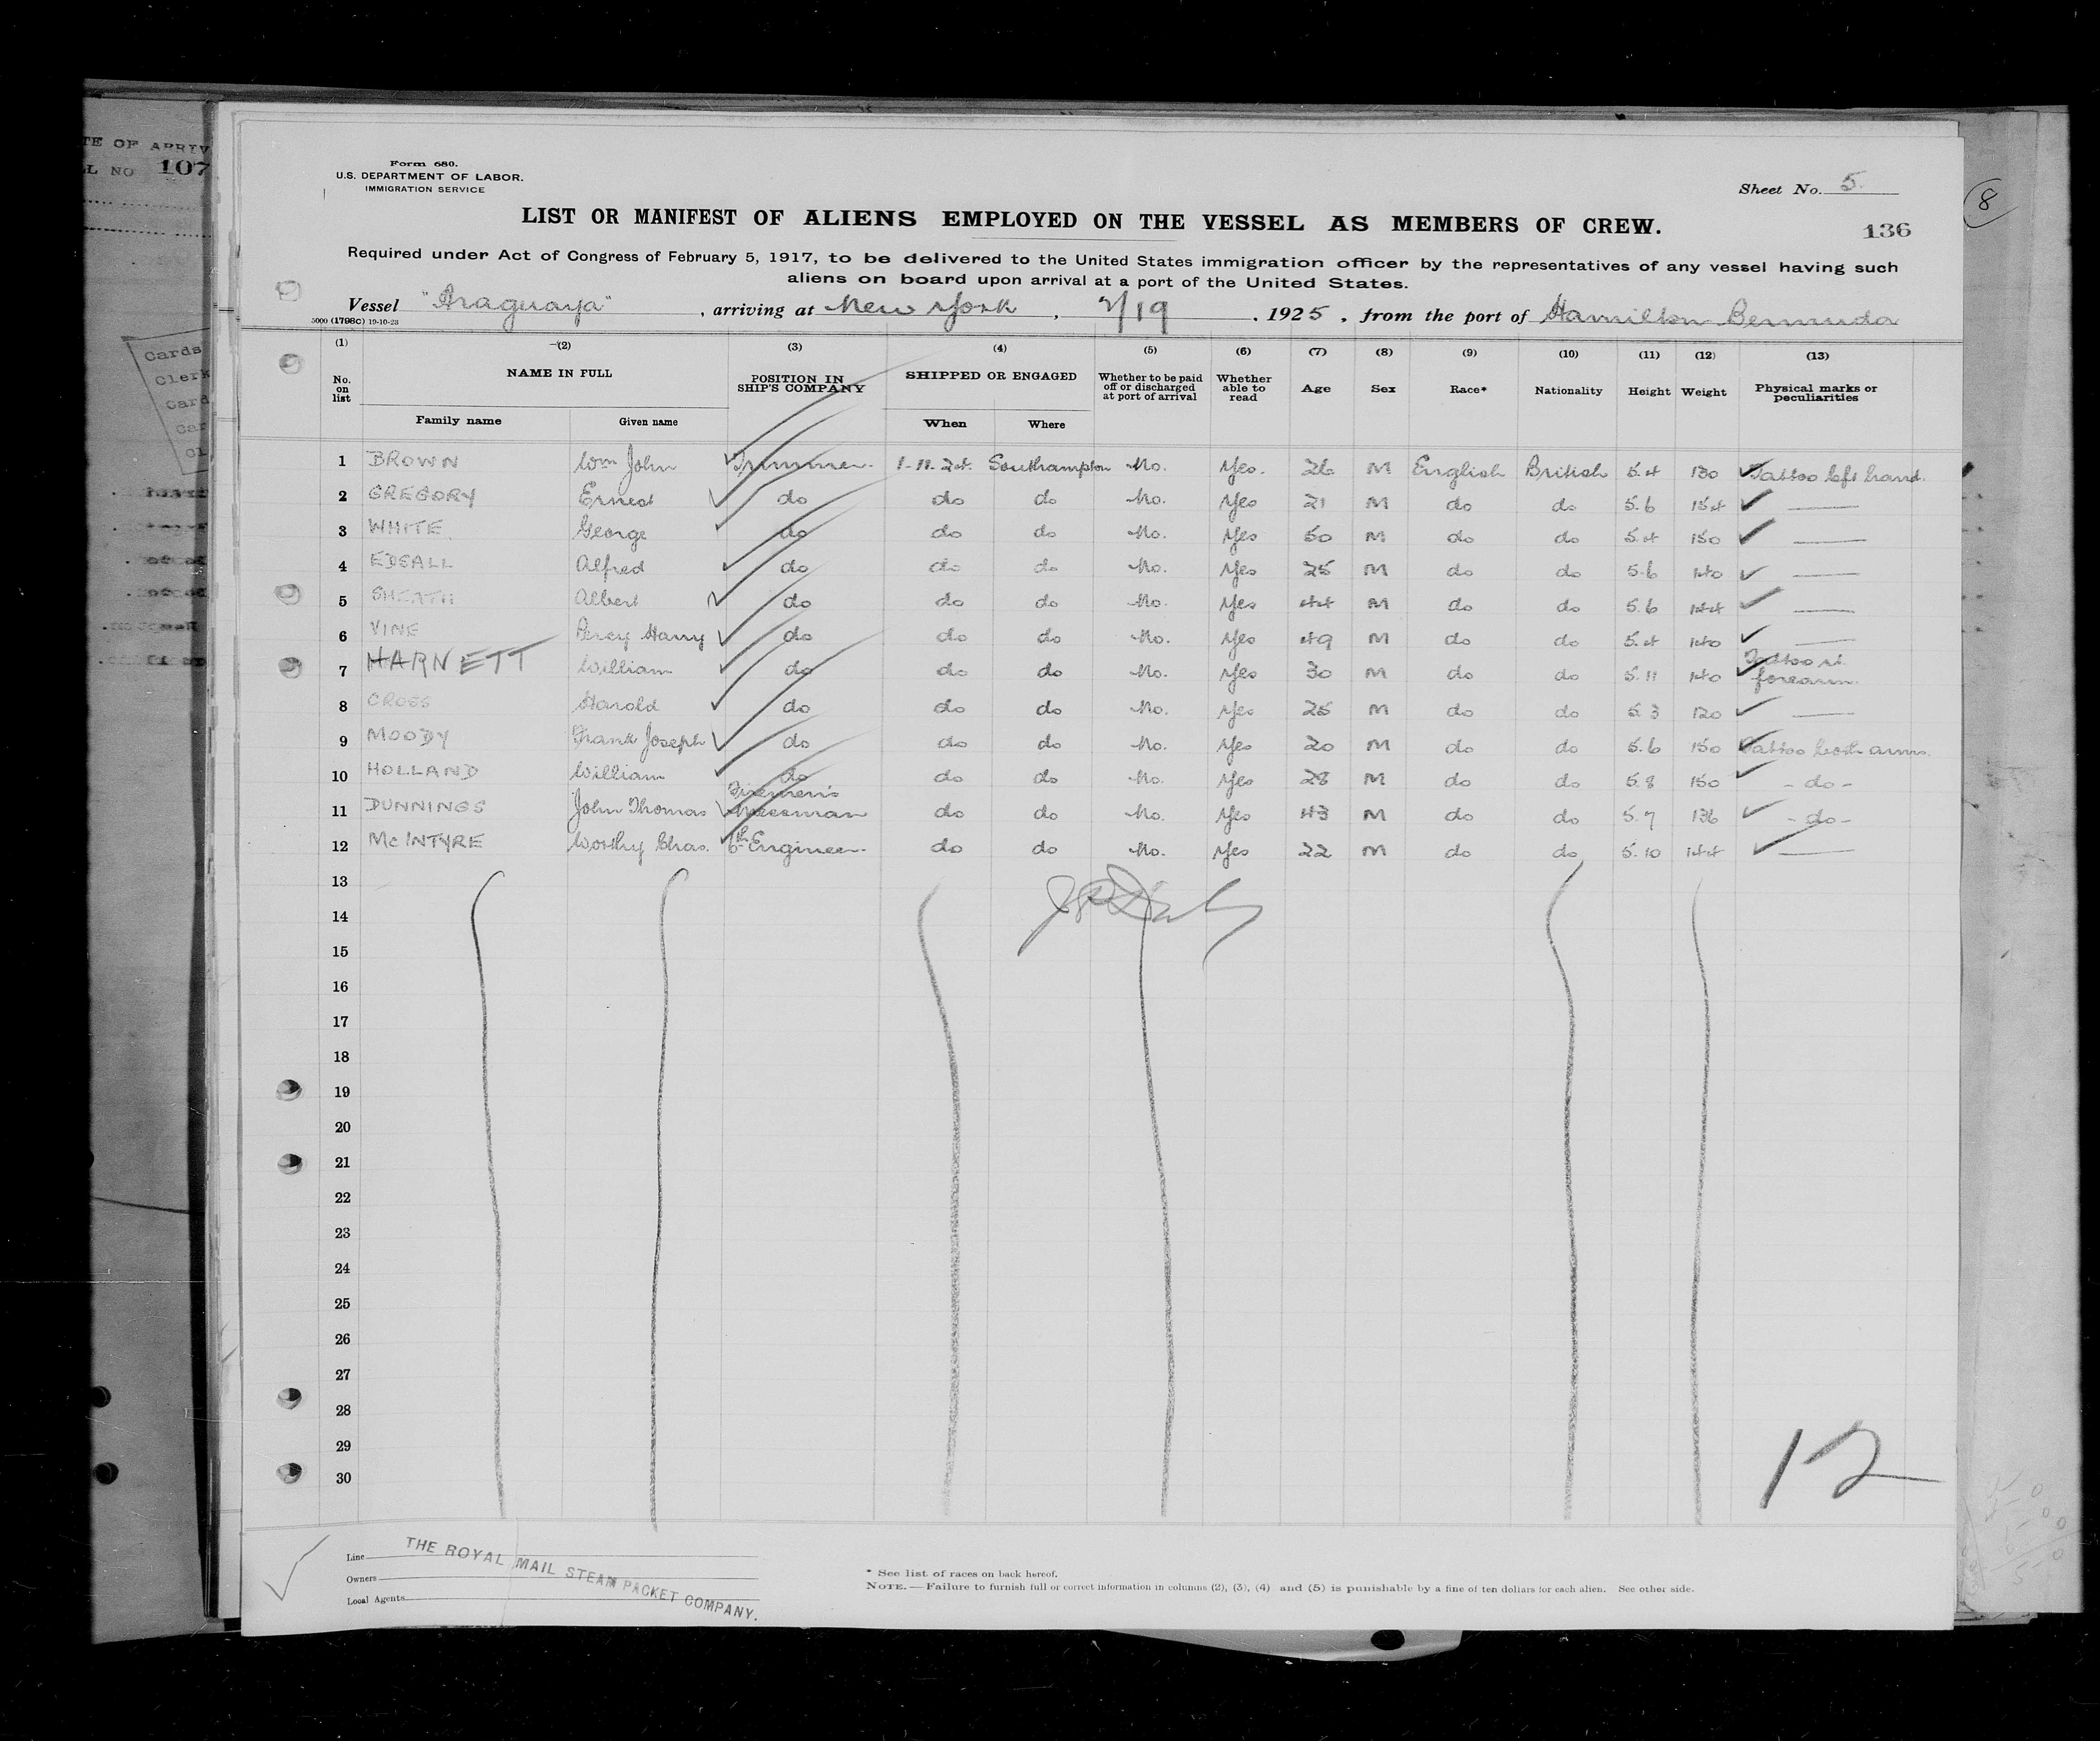 TE OF ARRIV
LL NO 107
Cards
Clerk
Card
Car
Cl
Form 680.
U.S. DEPARTMENT OF LABOR.
IMMIGRATION SERVICE
Sheet No. 5.
8
LIST OR MANIFEST OF ALIENS EMPLOYED ON THE VESSEL AS MEMBERS OF CREW.
136
Required under Act of Congress of February 5, 1917, to be delivered to the United States immigration officer by the representatives of any vessel having such
aliens on board upon arrival at a port of the United States.
Vessel "Araguaya", arriving at New York, 2/19, 1925, from the port of Hamilton Bermuda
5000 (1798C) 19-10-23
(1) (2) (3) (4) (5) (6) (7) (8) (9) (10) (11) (12) (13)
No. on list NAME IN FULL POSITION IN SHIP'S COMPANY SHIPPED OR ENGAGED Whether to be paid off or discharged at port of arrival Whether able to read Age Sex Race* Nationality Height Weight Physical marks or peculiarities
Family name Given name When Where
1 BROWN Wm John Trimmer. 1-11-24. Southampton No. Yes. 26 M English British 5.4 130 Tattoo left hand.
2 GREGORY Ernest do do do No. Yes 21 M do do 5.6 154
3 WHITE George do do do No. Yes 50 M do do 5.4 150
4 EDSALL Alfred do do do No. Yes 25 M do do 5.6 140
5 SHEATH Albert do do do No. Yes 44 M do do 5.6 144
6 VINE Percy Harry do do do No. Yes 49 M do do 5.4 140
7 HARNETT William do do do No. Yes 30 M do do 5.11 140 Tattoo rt. forearm.
8 CROSS Harold do do do No. Yes 25 M do do 5.3 120
9 MOODY Frank Joseph do do do No. Yes 20 M do do 5.6 150 Tattoo both arms.
10 HOLLAND William do do do No. Yes 28 M do do 5.8 150 - do -
11 DUNNINGS John Thomas Firemen's Messman do do No. Yes 43 M do do 5.7 136 - do -
12 McINTYRE Worthy Chas. 6th Engineer. do do No. Yes 22 M do do 5.10 144
13
14
15
16
17
18
19
20
21
22
23
24
25
26
27
28
29
30
12
Line
Owners
Local Agents
THE ROYAL MAIL STEAM PACKET COMPANY.
* See list of races on back hereof.
NOTE.—Failure to furnish full or correct information in columns (2), (3), (4) and (5) is punishable by a fine of ten dollars for each alien. See other side.